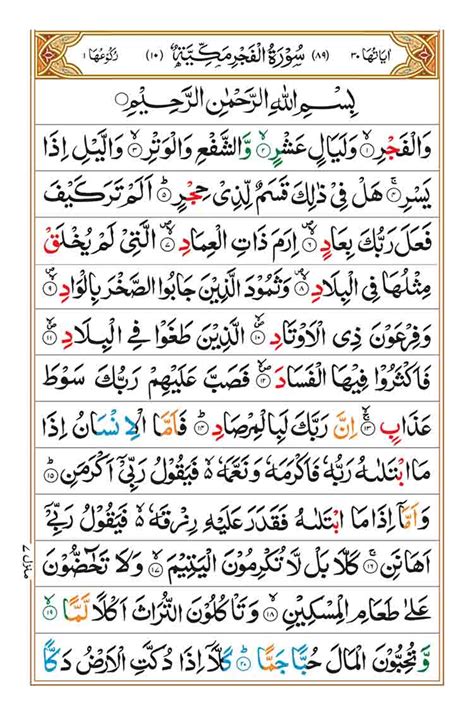 اٰیَاتُهَا ٣٠ (٨٩) سُوْرَةُ الْفَجْرِ مَكِّیَّةٌ (١٠) رُكُوْعُهَا ١
بِسْمِ اللّٰهِ الرَّحْمٰنِ الرَّحِیْمِ
وَالْفَجْرِ ۙ﴿١﴾ وَلَیَالٍ عَشْرٍ ۙ﴿٢﴾ وَّالشَّفْعِ وَالْوَتْرِ ۙ﴿٣﴾ وَالَّیْلِ اِذَا
یَسْرِ ۚ﴿٤﴾ هَلْ فِیْ ذٰلِكَ قَسَمٌ لِّذِیْ حِجْرٍ ؕ﴿٥﴾ اَلَمْ تَرَ كَیْفَ
فَعَلَ رَبُّكَ بِعَادٍ ۪ۙ﴿٦﴾ اِرَمَ ذَاتِ الْعِمَادِ ۪ۙ﴿٧﴾ الَّتِیْ لَمْ یُخْلَقْ
مِثْلُهَا فِی الْبِلَادِ ۪ۙ﴿٨﴾ وَثَمُوْدَ الَّذِیْنَ جَابُوا الصَّخْرَ بِالْوَادِ ۪ۙ﴿٩﴾
وَفِرْعَوْنَ ذِی الْاَوْتَادِ ۪ۙ﴿١٠﴾ الَّذِیْنَ طَغَوْا فِی الْبِلَادِ ۪ۙ﴿١١﴾
فَاَكْثَرُوْا فِیْهَا الْفَسَادَ ۪ۙ﴿١٢﴾ فَصَبَّ عَلَیْهِمْ رَبُّكَ سَوْطَ
عَذَابٍ ۚۙ﴿١٣﴾ اِنَّ رَبَّكَ لَبِالْمِرْصَادِ ؕ﴿١٤﴾ فَاَمَّا الْاِنْسَانُ اِذَا
مَا ابْتَلٰىهُ رَبُّهٗ فَاَكْرَمَهٗ وَنَعَّمَهٗ ۙ۬ فَیَقُوْلُ رَبِّیْۤ اَكْرَمَنِ ؕ﴿١٥﴾
وَاَمَّاۤ اِذَا مَا ابْتَلٰىهُ فَقَدَرَ عَلَیْهِ رِزْقَهٗ ۙ۬ فَیَقُوْلُ رَبِّیْۤ
اَهَانَنِ ۚ﴿١٦﴾ كَلَّا بَلْ لَّا تُكْرِمُوْنَ الْیَتِیْمَ ۙ﴿١٧﴾ وَلَا تَحٰٓضُّوْنَ
عَلٰی طَعَامِ الْمِسْكِیْنِ ۙ﴿١٨﴾ وَتَاْكُلُوْنَ التُّرَاثَ اَكْلًا لَّمًّا ۙ﴿١٩﴾
وَّتُحِبُّوْنَ الْمَالَ حُبًّا جَمًّا ؕ﴿٢٠﴾ كَلَّاۤ اِذَا دُكَّتِ الْاَرْضُ دَكًّا